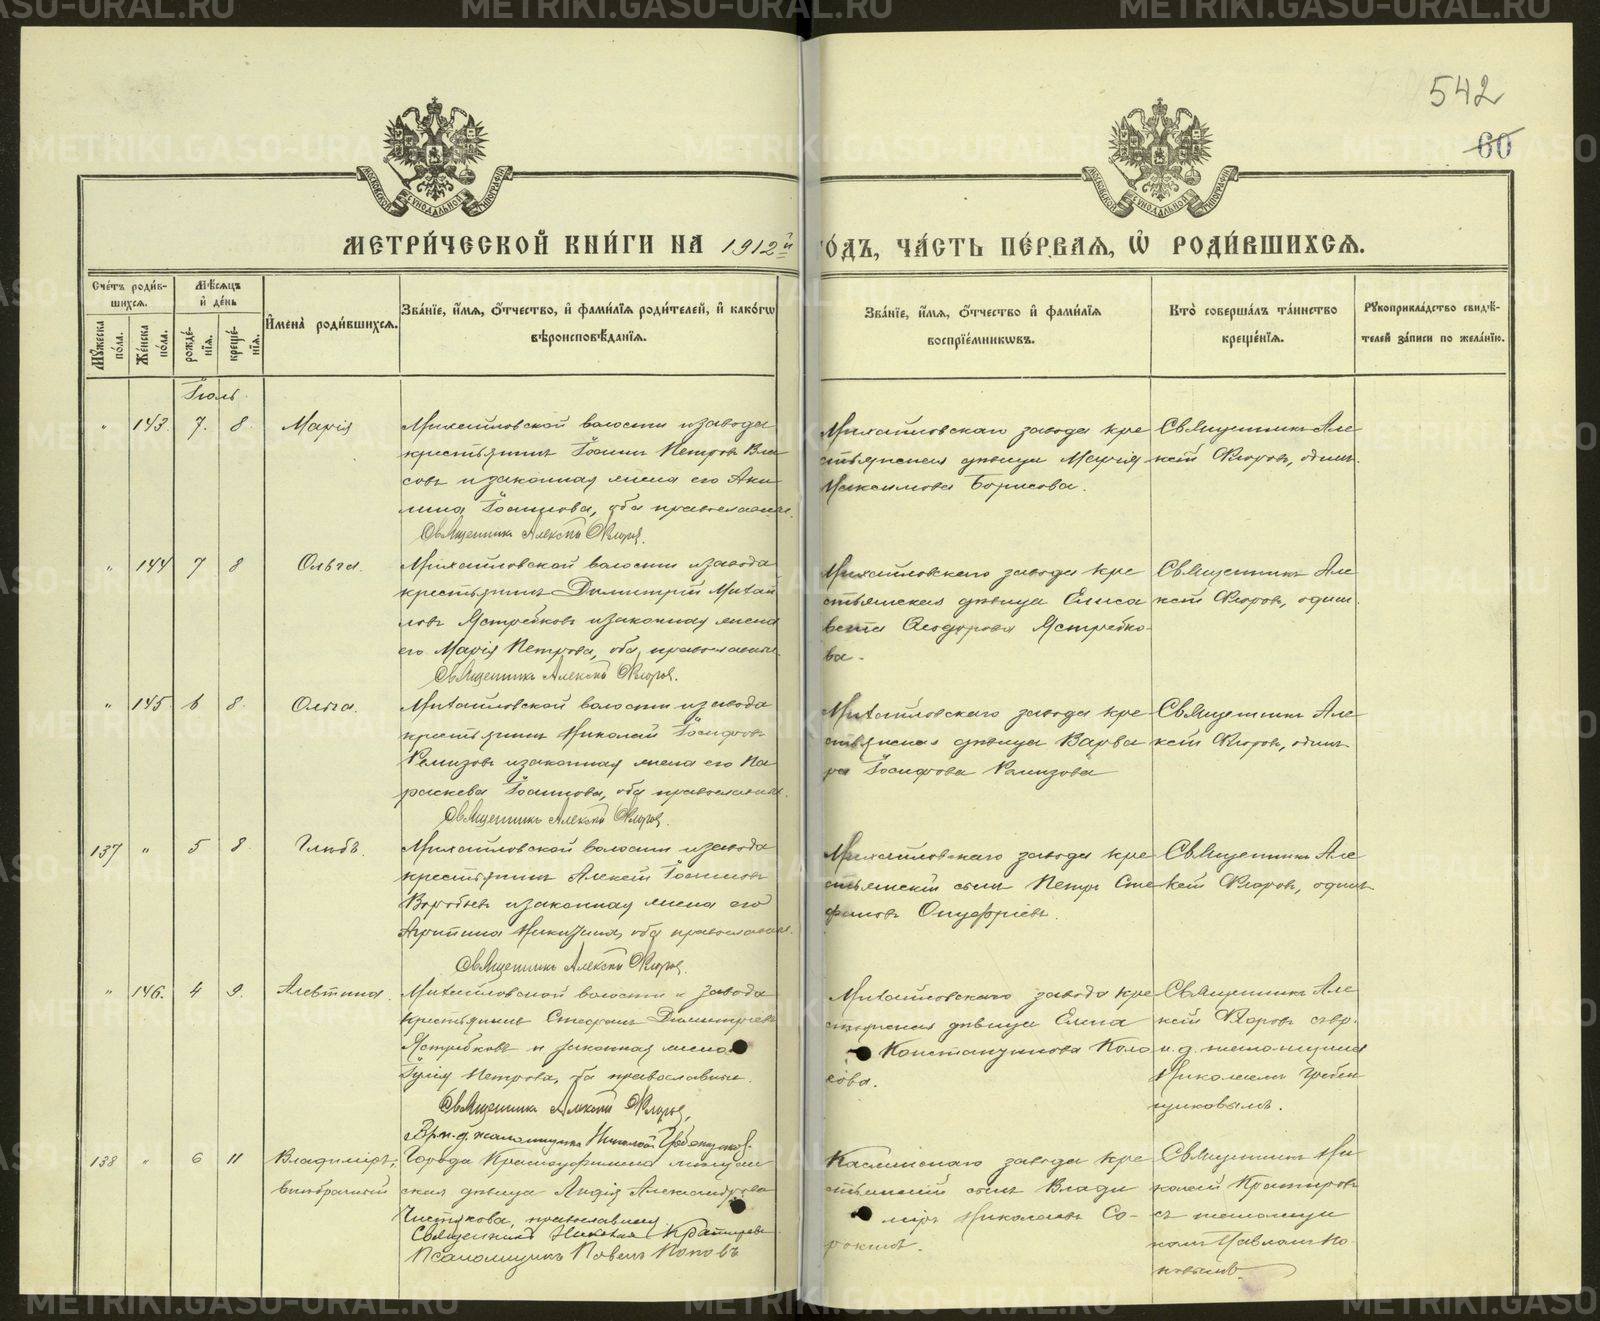 METRIKI.GASO-URAL.RU
542
60
МЕТРИ́ЧЕСКОЙ КНИ́ГИ НА 1912й
ГО́ДЪ, ЧА́СТЬ ПЕ́РВАЯ, Ѡ҆ РОДИ́ВШИХСѦ.
Сче́тъ роди́вшихсѧ.
Мꙋ́жеска по́ла.
Же́нска по́ла.
Мѣ́сѧцъ и҆ де́нь
рожде́нїѧ.
креще́нїѧ.
И҆мена̀ роди́вшихсѧ.
Зва́нїе, и҆́мѧ, ѻ҆́тчество, и҆ фами́лїѧ роди́телей, и҆ како́гѡ
вѣроисповѣ́данїѧ.
Зва́нїе, и҆́мѧ, ѻ҆́тчество и҆ фами́лїѧ
воспрїе́мникѡвъ.
Кто̀ соверша́лъ та́инство
креще́нїѧ.
Рꙋкоприкла́дство свидѣ́-
телей за́писи по жела́нїю.
Іюль.
" 143. 7. 8. Марія
Михайловской волости и завода
крестьянинъ Іоаннъ Петровъ Вла
совъ и законная жена его Аки
лина Іоаннова, оба православные.
Священникъ Алексѣй Флоровъ.
Михайловскаго завода кре
стьянская дѣвица Марія
Максимова Борисова.
Священникъ Але
ксѣй Флоровъ, одинъ.
" 144 7 8 Ольга.
Михайловской волости и завода
крестьянинъ Димитрій Михай
ловъ Ястребковъ и законная жена
его Марія Петрова, оба православные.
Священникъ Алексѣй Флоровъ.
Михайловскаго завода кре
стьянская дѣвица Елиса
вета Ѳеодорова Ястребко-
ва.
Священникъ Але
ксѣй Флоровъ, одинъ.
" 145. 6 8. Ольга.
Михайловской волости и завода
крестьянинъ Николай Іосифовъ
Ремизовъ и законная жена его Па
раскева Іоаннова, оба православные.
Священникъ Алексѣй Флоровъ.
Михайловскаго завода кре
стьянская дѣвица Варва
ра Іосифова Ремизова
Священникъ Але
ксѣй Флоровъ, одинъ
137 " 5 8. Глѣбъ.
Михайловской волости и завода
крестьянинъ Алексѣй Іоанновъ
Воробьевъ и законная жена его
Агрипина Никитина, оба православные.
Священникъ Алексѣй Флоровъ.
Михайловскаго завода кре
стьянскій сынъ Петръ Сте
фановъ Онуфріевъ.
Священникъ Але
ксѣй Флоровъ, одинъ
" 146. 4 9. Алевтина.
Михайловской волости и завода
крестьянинъ Стефанъ Димитріевъ
Ястребковъ и законная жена
Іулія Петрова, оба православные.
Священникъ Алексѣй Флоровъ,
Вр. и. д. псаломщика Николай Гребенщиковъ.
Михайловскаго завода кре
стьянская дѣвица Елена
Константинова Коло
сова.
Священникъ Але
ксѣй Флоровъ съ вр.
и. д. псаломщика
Николаемъ Гребен
щиковымъ.
138 " 6 11 Владиміръ,
внѣбрачный
Города Красноуфимска мѣщан
ская дѣвица Лидія Александрова
Чистякова, православная
Священникъ Николай
Псаломщикъ Павелъ Поповъ
Каслинскаго завода кре
стьянскій сынъ Влади
міръ Николаевъ Со-
рокинъ.
Священникъ Ни
колай
съ псаломщи
комъ Павломъ По
повымъ.